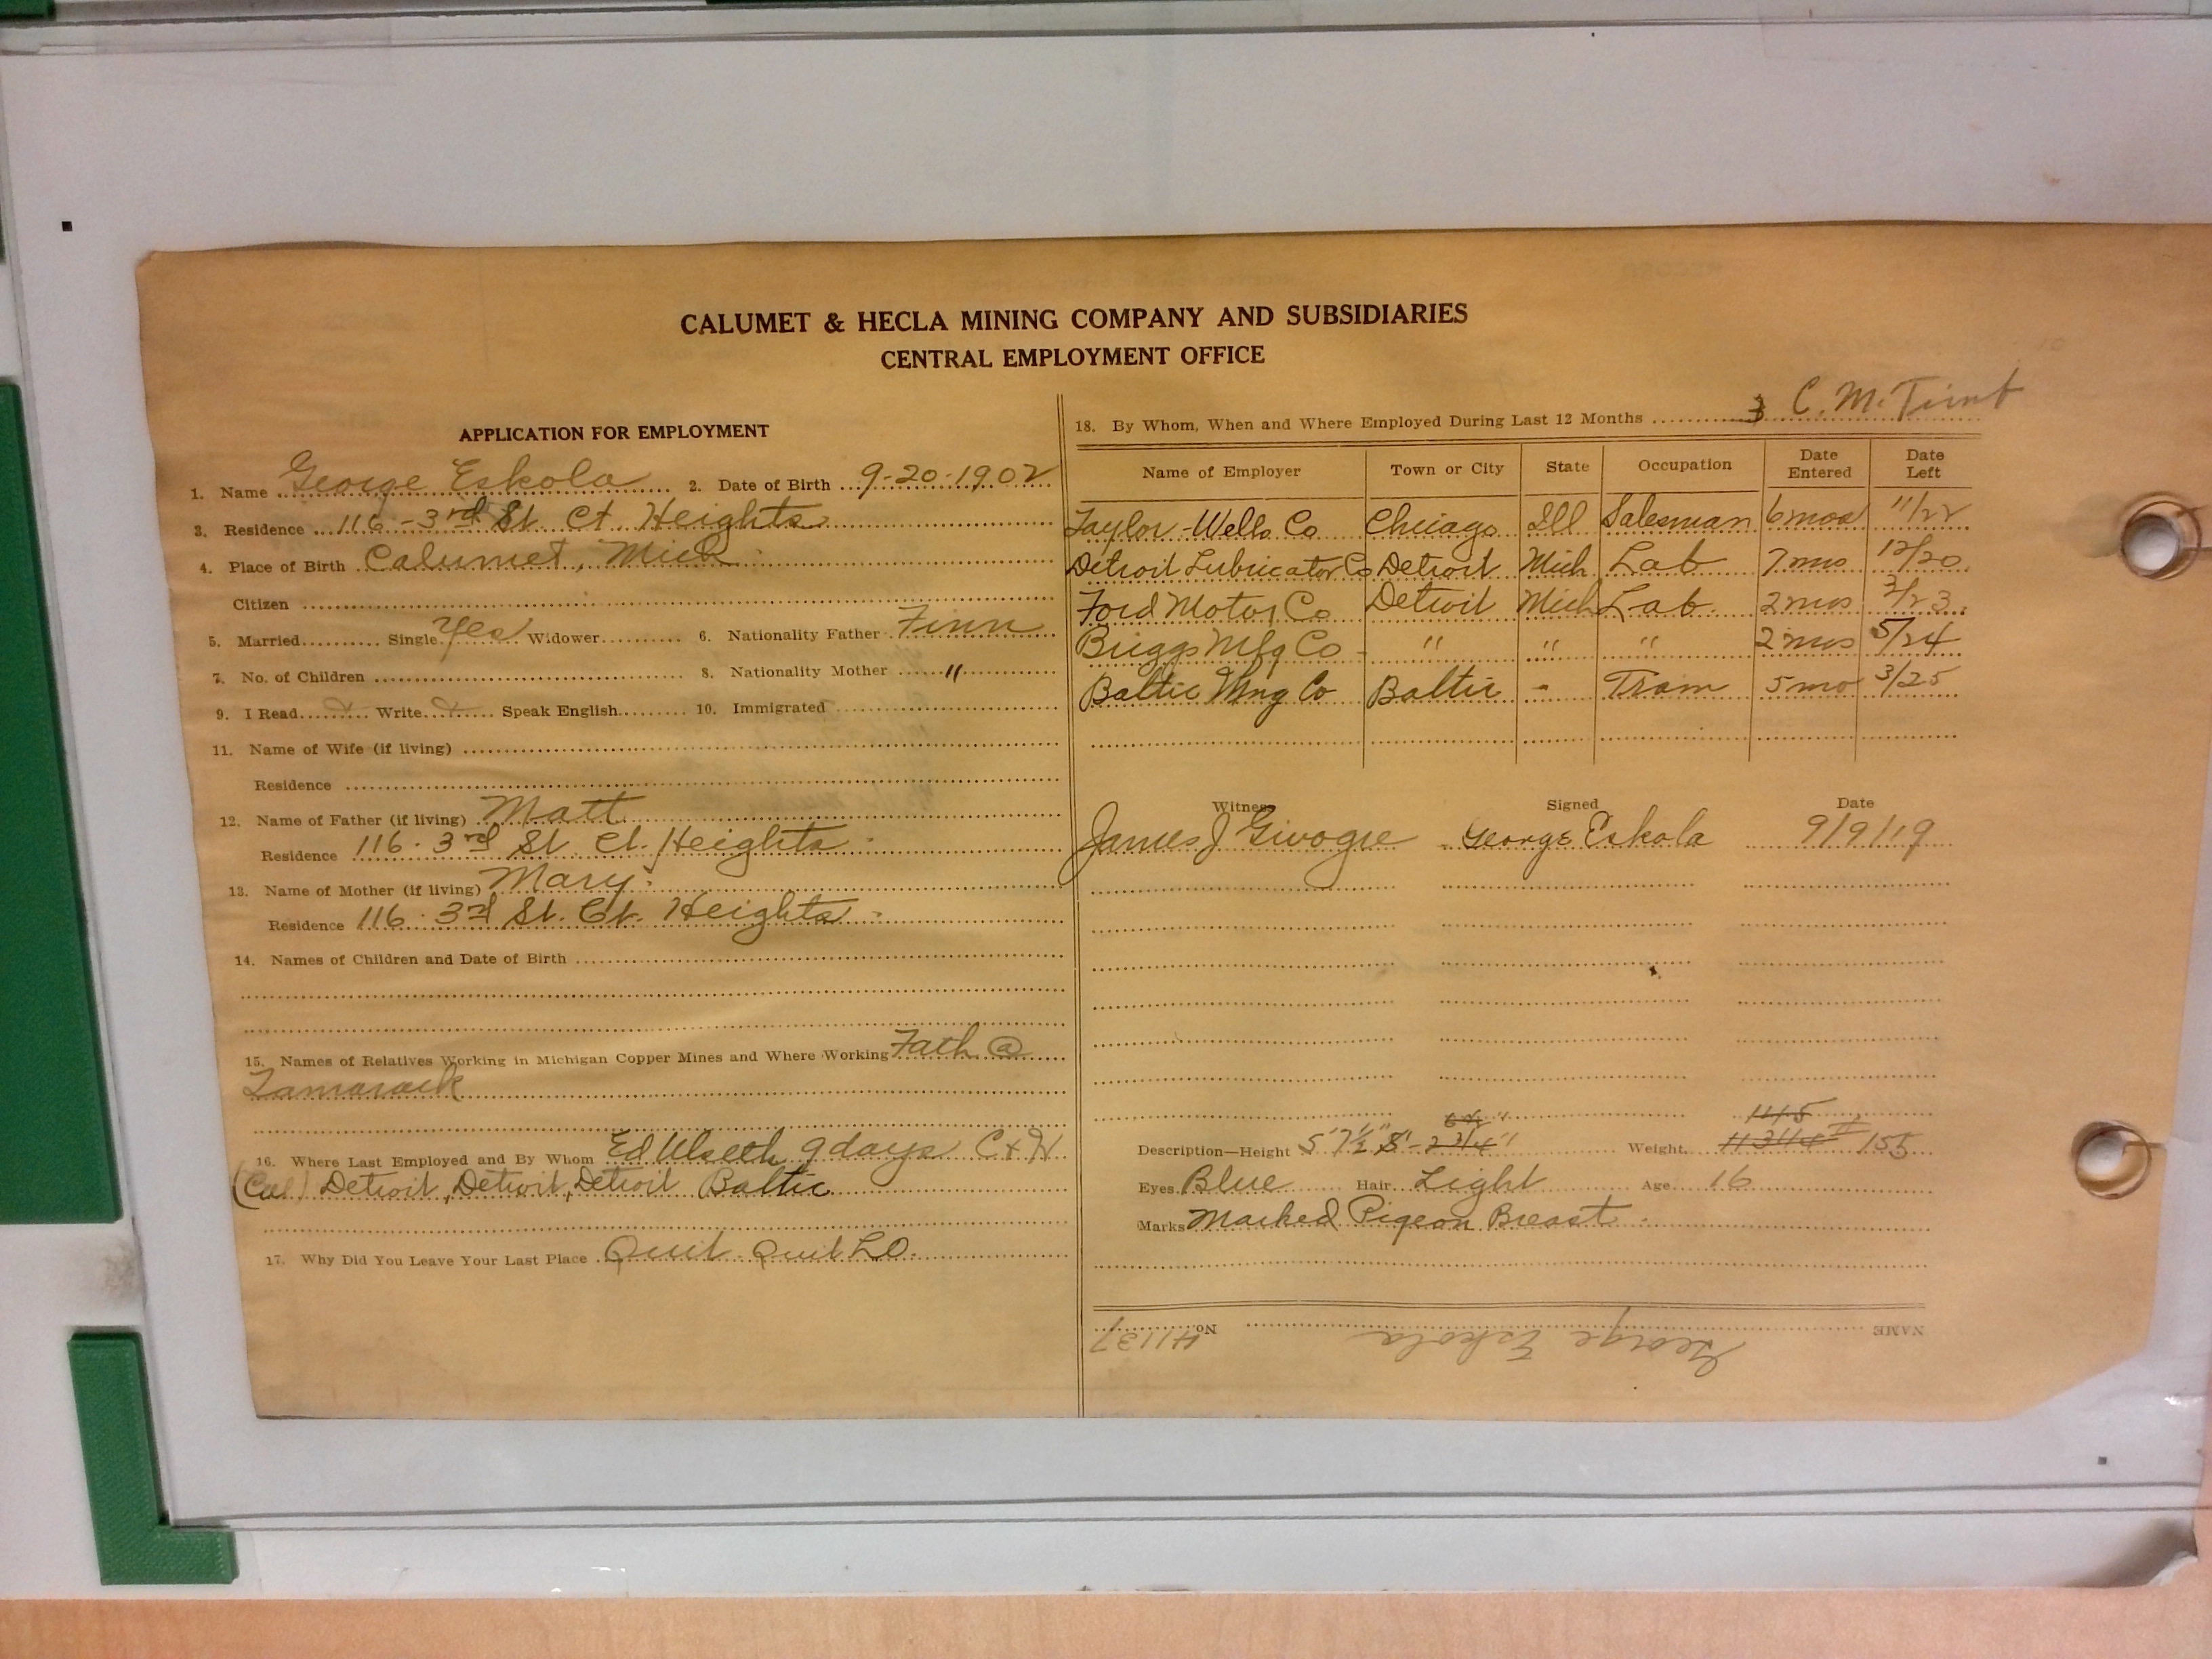 CALUMET & HECLA MINING COMPANY AND SUBSIDIARIES
CENTRAL EMPLOYMENT OFFICE
APPLICATION FOR EMPLOYMENT
1. Name George Eskola 2. Date of Birth 9-20-1902
3. Residence 116-3rd St. Ct. Heights
4. Place of Birth Calumet, Mich
Citizen
5. Married Single Yes Widower 6. Nationality Father Finn
7. No. of Children 8. Nationality Mother "
9. I Read Write Speak English 10. Immigrated
11. Name of Wife (if living)
Residence
12. Name of Father (if living) Matt
Residence 116-3rd St Ct. Heights
13. Name of Mother (if living) Mary
Residence 116-3rd St. Ct. Heights
14. Names of Children and Date of Birth
15. Names of Relatives Working in Michigan Copper Mines and Where Working Fath @
Tamarack
16. Where Last Employed and By Whom Ed Ulseth 9 days C+H
Detroit, Detroit, Detroit Baltic
17. Why Did You Leave Your Last Place Quit. Quit LO.
18. By Whom, When and Where Employed During Last 12 Months 3 C. M.
Name of Employer Town or City State Occupation Date Entered Date Left
Taylor-Wells Co Chicago Ill Salesman 6 mos 11/22
Detroit Lubricator Co Detroit Mich Lab 7 mos 12/20
Ford Motor Co Detroit Mich Lab. 2 mos 3/23
Briggs Mfg Co " " " 2 mos 5/24
Baltic Mng Co Baltic - Tram 5 mo 3/25
Witness Signed Date
James J George Eskola 9/9/19
Description—Height 5' 7 1/2" Weight 155
Eyes Blue Hair Light Age 16
Marks Marked Pigeon Breast
NAME George Eskola No. 41137